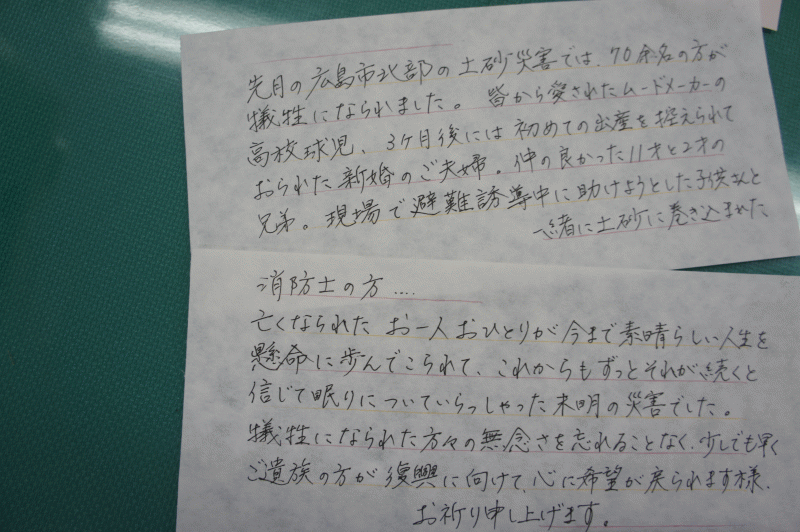 先月の広島市北部の土砂災害では、70余名の方が
犠牲になられました。皆から愛されたムードメーカーの
高校球児、3ヶ月後には初めての出産を控えられて
おられた新婚のご夫婦。仲の良かった11才と2才の
兄弟。現場で避難誘導中に助けようとした子供さんと
一緒に土砂に巻き込まれた
消防士の方....
亡くなられたお一人おひとりが今まで素晴らしい人生を
懸命に歩んでこられて、これからもずっとそれが続くと
信じて眠りについていらっしゃった未明の災害でした。
犠牲になられた方々の無念さを忘れることなく、少しでも早く
ご遺族の方が復興に向けて、心に希望が戻られます様、
お祈り申し上げます。